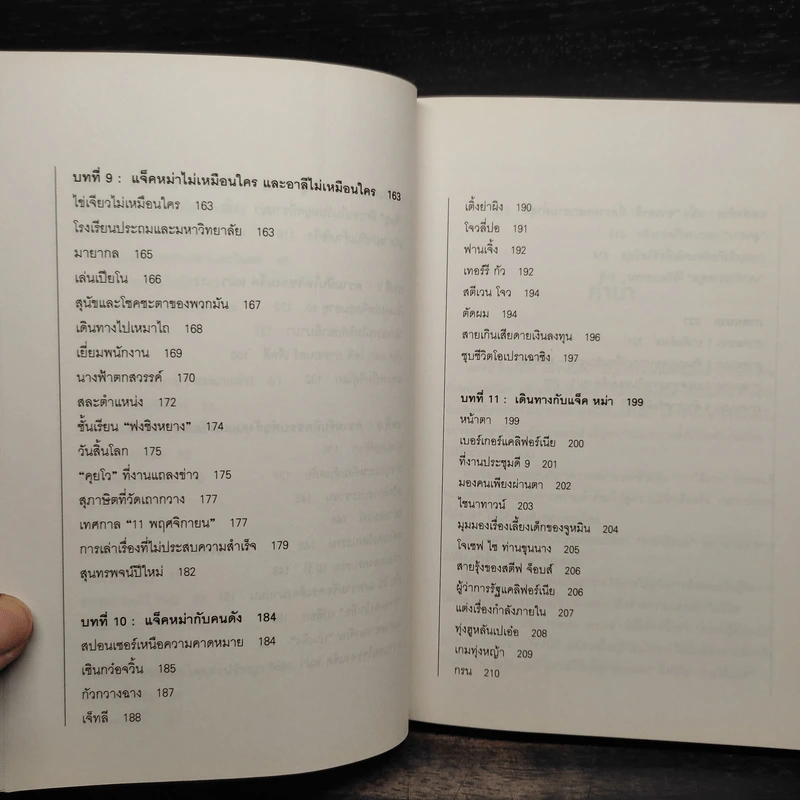 บทที่ 9 : แจ็คหม่าไม่เหมือนใคร และอาลีไม่เหมือนใคร 163
ไข่เจียวไม่เหมือนใคร 163
โรงเรียนประถมและมหาวิทยาลัย 163
มายากล 165
เล่นเปียโน 166
สุนัขและโชคชะตาของพวกมัน 167
เดินทางไปเหมาไถ 168
เยี่ยมพนักงาน 169
นางฟ้าตกสวรรค์ 170
สละตำแหน่ง 172
ชั้นเรียน “ฟงชิงหยาง” 174
วันสิ้นโลก 175
“คุยโว” ที่งานแถลงข่าว 175
สุภาษิตที่วัดเถากวาง 177
เทศกาล “11 พฤศจิกายน” 177
การเล่าเรื่องที่ไม่ประสบความสำเร็จ 179
สุนทรพจน์ปีใหม่ 182
บทที่ 10 : แจ็คหม่ากับคนดัง 184
สปอนเซอร์เหนือความคาดหมาย 184
เซินกว๋อจวิ้น 185
กัวกวางฉาง 187
เจ็ทลี 188
เติ้งย่าผิง 190
โจวลี่ปอ 191
ฟานเจิ้ง 192
เทอร์รี กัว 192
สตีเวน โจว 194
ตัดผม 194
สายเกินเสียดายเงินลงทุน 196
ชุบชีวิตโอเปราเฉาชิง 197
บทที่ 11 : เดินทางกับแจ็ค หม่า 199
หน้าตา 199
เบอร์เกอร์แคลิฟอร์เนีย 200
ที่งานประชุมดี 9 201
มองคนเพียงผ่านตา 202
ไชนาทาวน์ 203
มุมมองเรื่องเลี้ยงเด็กของจูหมิน 204
โจเซฟ ไช ท่านขุนนาง 205
สายรุ้งของสตีฟ จ็อบส์ 206
ผู้ว่าการรัฐแคลิฟอร์เนีย 206
แต่งเรื่องกำลังภายใน 207
ทุ่งฮูหลันเปเอ๋อ 208
เกมทุ่งหญ้า 209
กรน 210